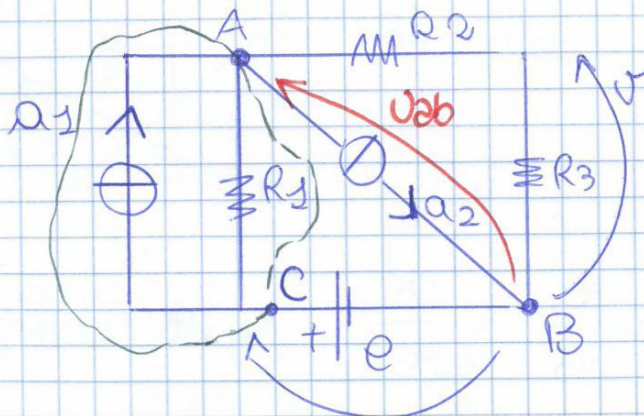 A
R2
a1
Uab
v
R1
R3
a2
C
+
e
B